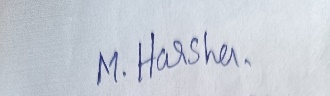 M. Harsha.